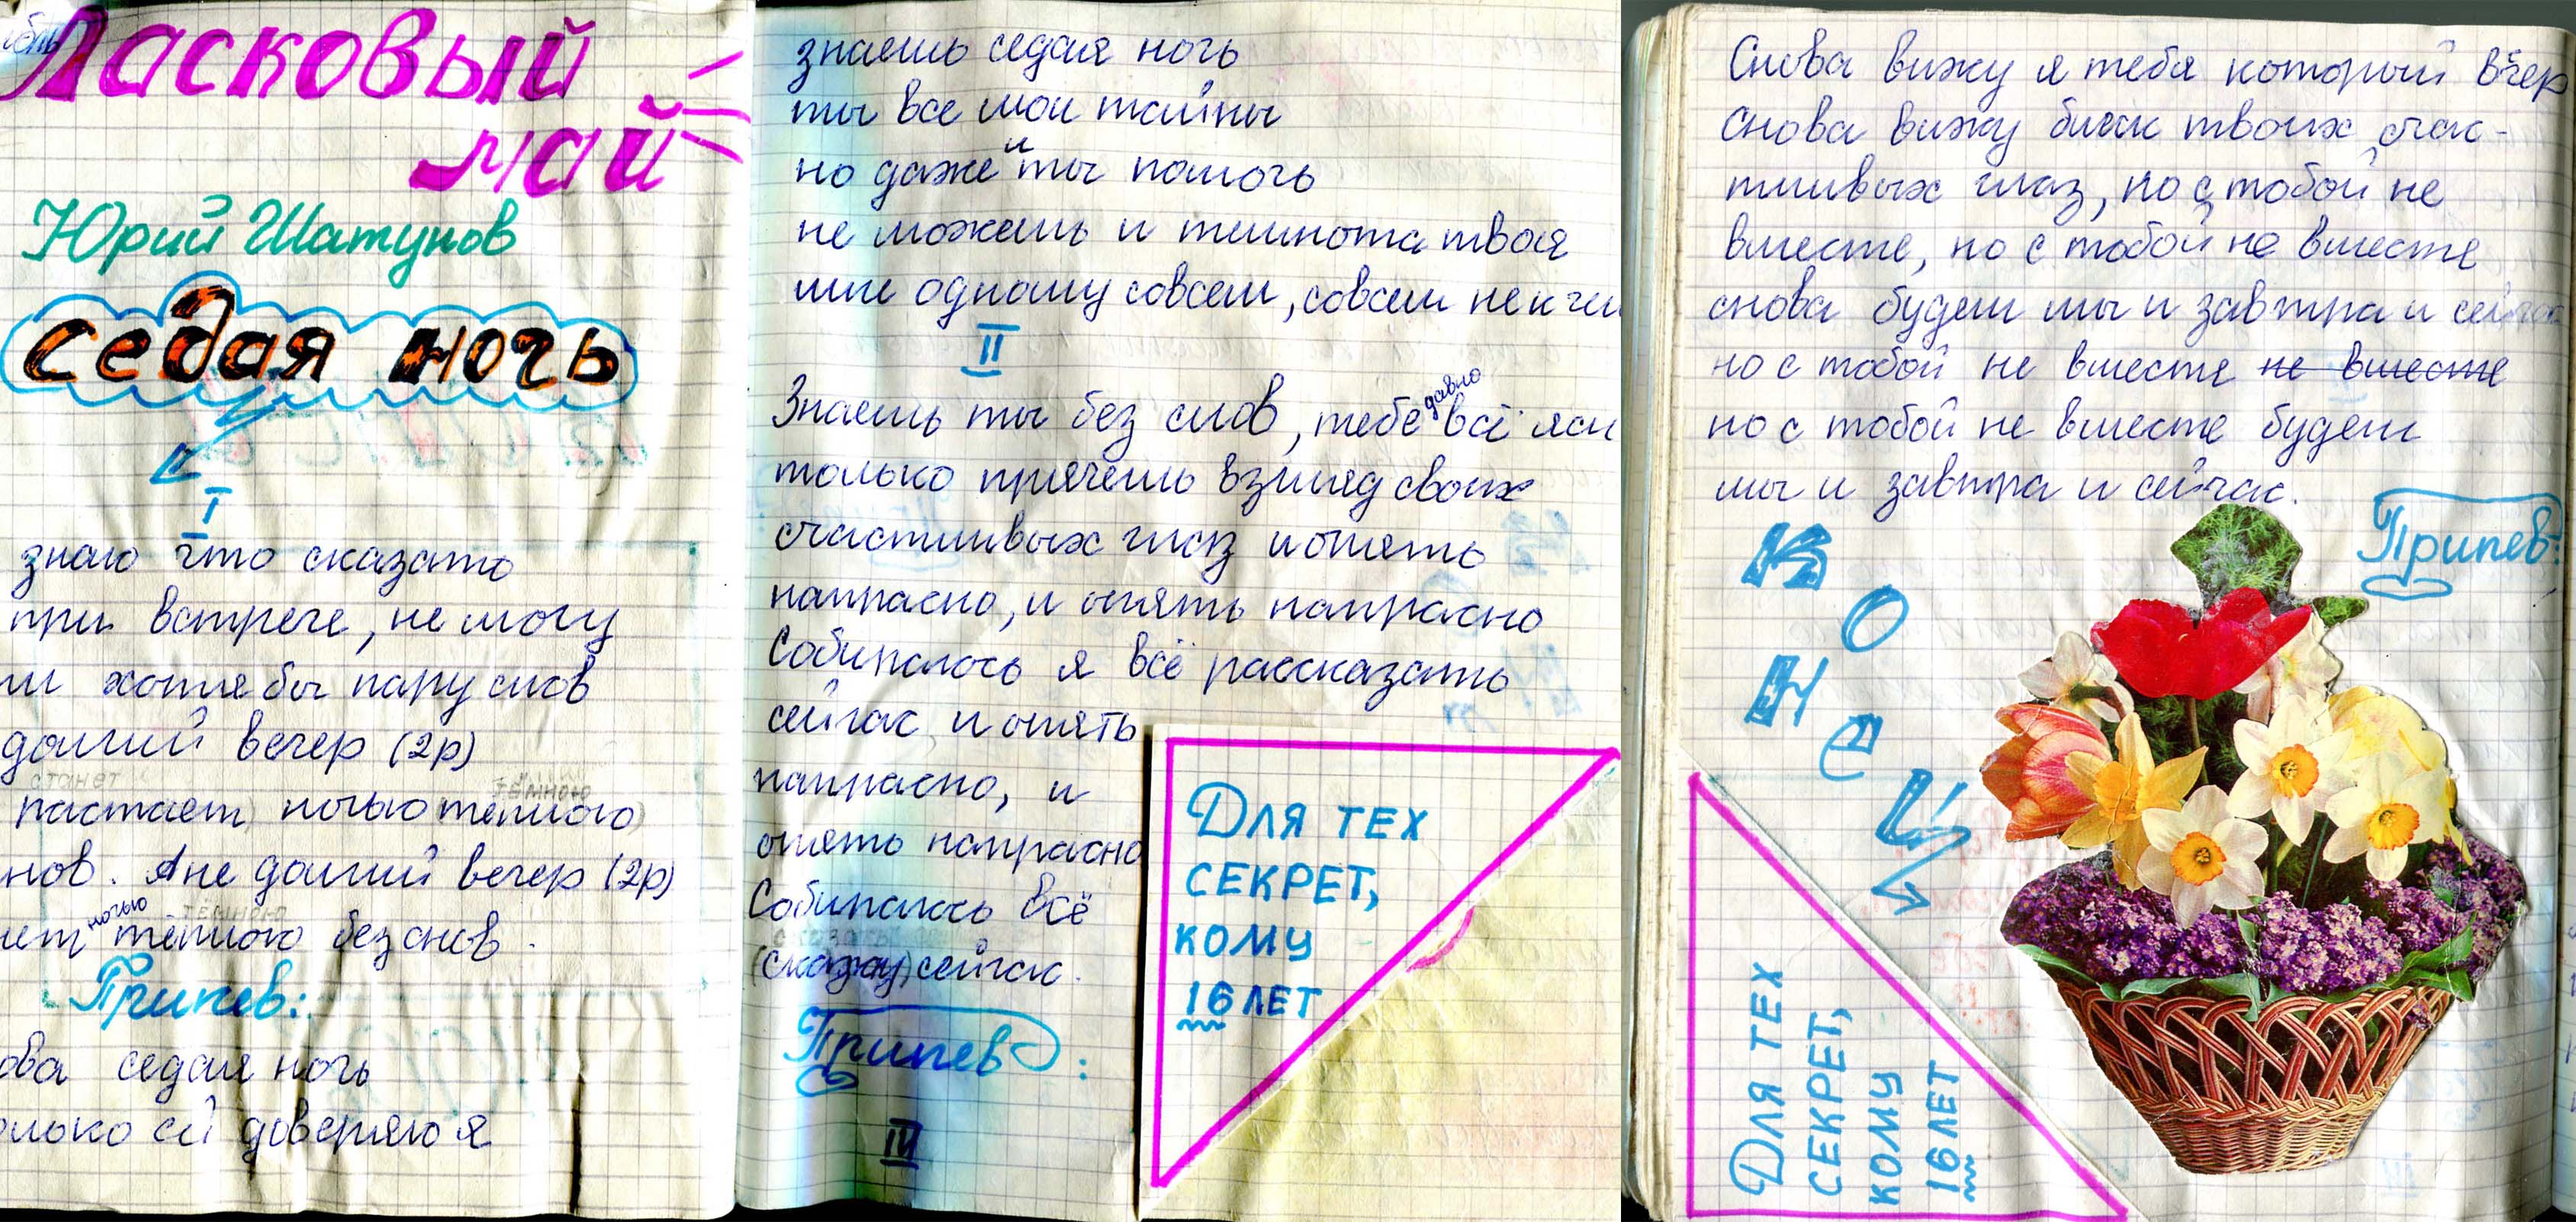 Ласковый
май
Юрий Шатунов
седая ночь
I
знаю что сказать
при встрече, не могу
хотя бы пару слов
долгий вечер (2р)
станет тёмною
растает ночью тёплою
нов. А не долгий вечер (2р)
ночью тёмною
тёплою без снов.
Припев:
ова седая ночь
олько ей доверяю я
знаешь седая ночь
ты все мои тайны
и
но даже ты помочь
не можешь и темнота твоя
мне одному совсем, совсем не к че
II
давно
Знаешь ты без слов, тебе всё ясн
только прячешь взгляд своих
счастливых глаз и опять
напрасно, и опять напрасно
Собиралось я всё рассказать
сейчас и опять
напрасно, и
опять напрасно
Собиралось всё
(скажу) сейчас.
Припев:
IV
Для тех
секрет,
кому
16 лет
Снова вижу я тебя который вечер
снова вижу блеск твоих счас-
тливых глаз, но с тобой не
вместе, но с тобой не вместе
снова будем мы и завтра и сейчас
но с тобой не вместе не вместе
но с тобой не вместе будем
мы и завтра и сейчас.
Припев:
Конец
Для тех
секрет,
кому
16 лет